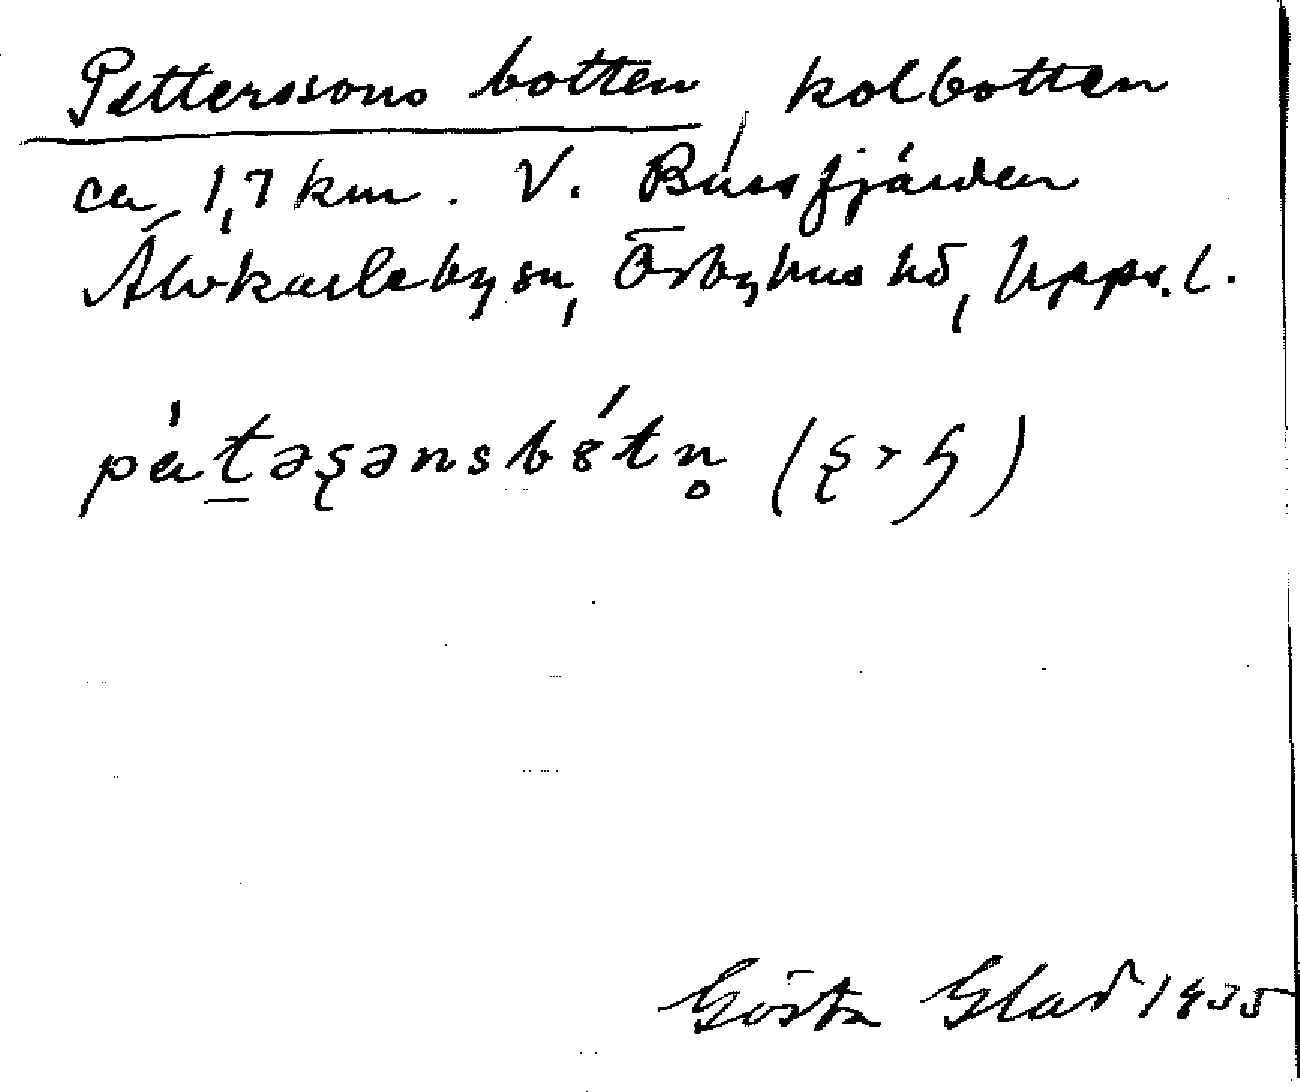 Petterssons botten, kolbotten
ca 1,7 km. V. Bússfjärden
Älvkarleby sn, Örbyhus hd, Upps. l.
pàtəʂənsbótn̥ (ʂ > ɧ)
Gösta Glad 1935